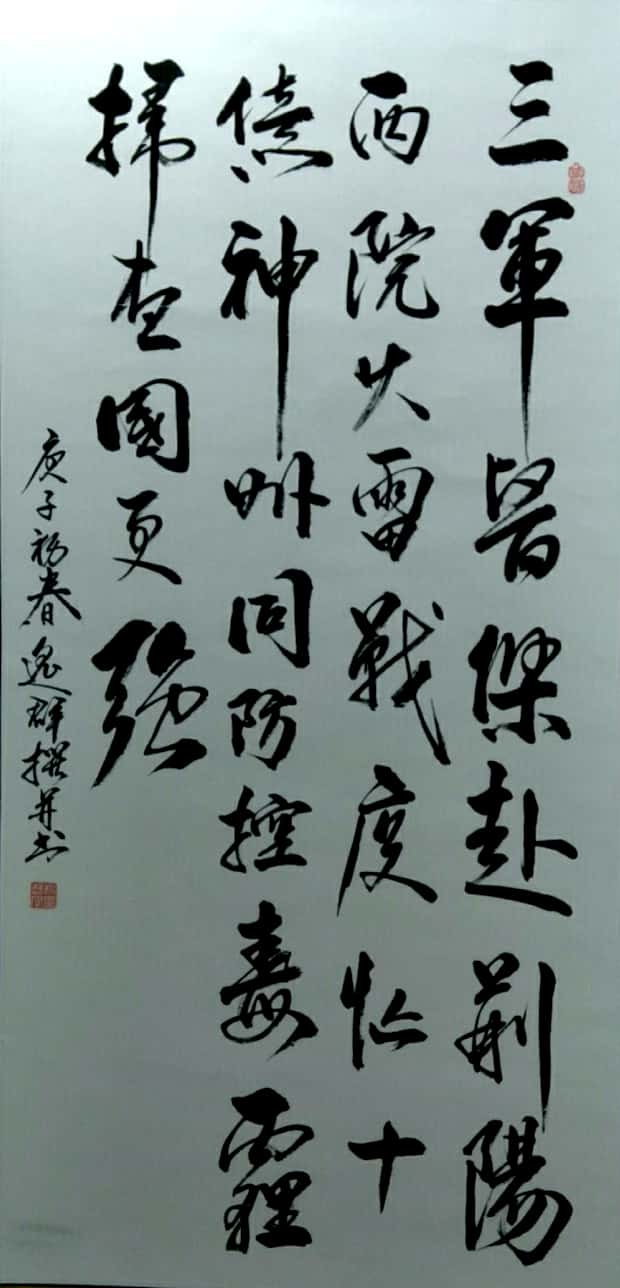 三軍醫傑赴荆陽
两院火雷戰度忙十
億神州同防控毒霾
掃查國更強
庚子初春逸群撰并书